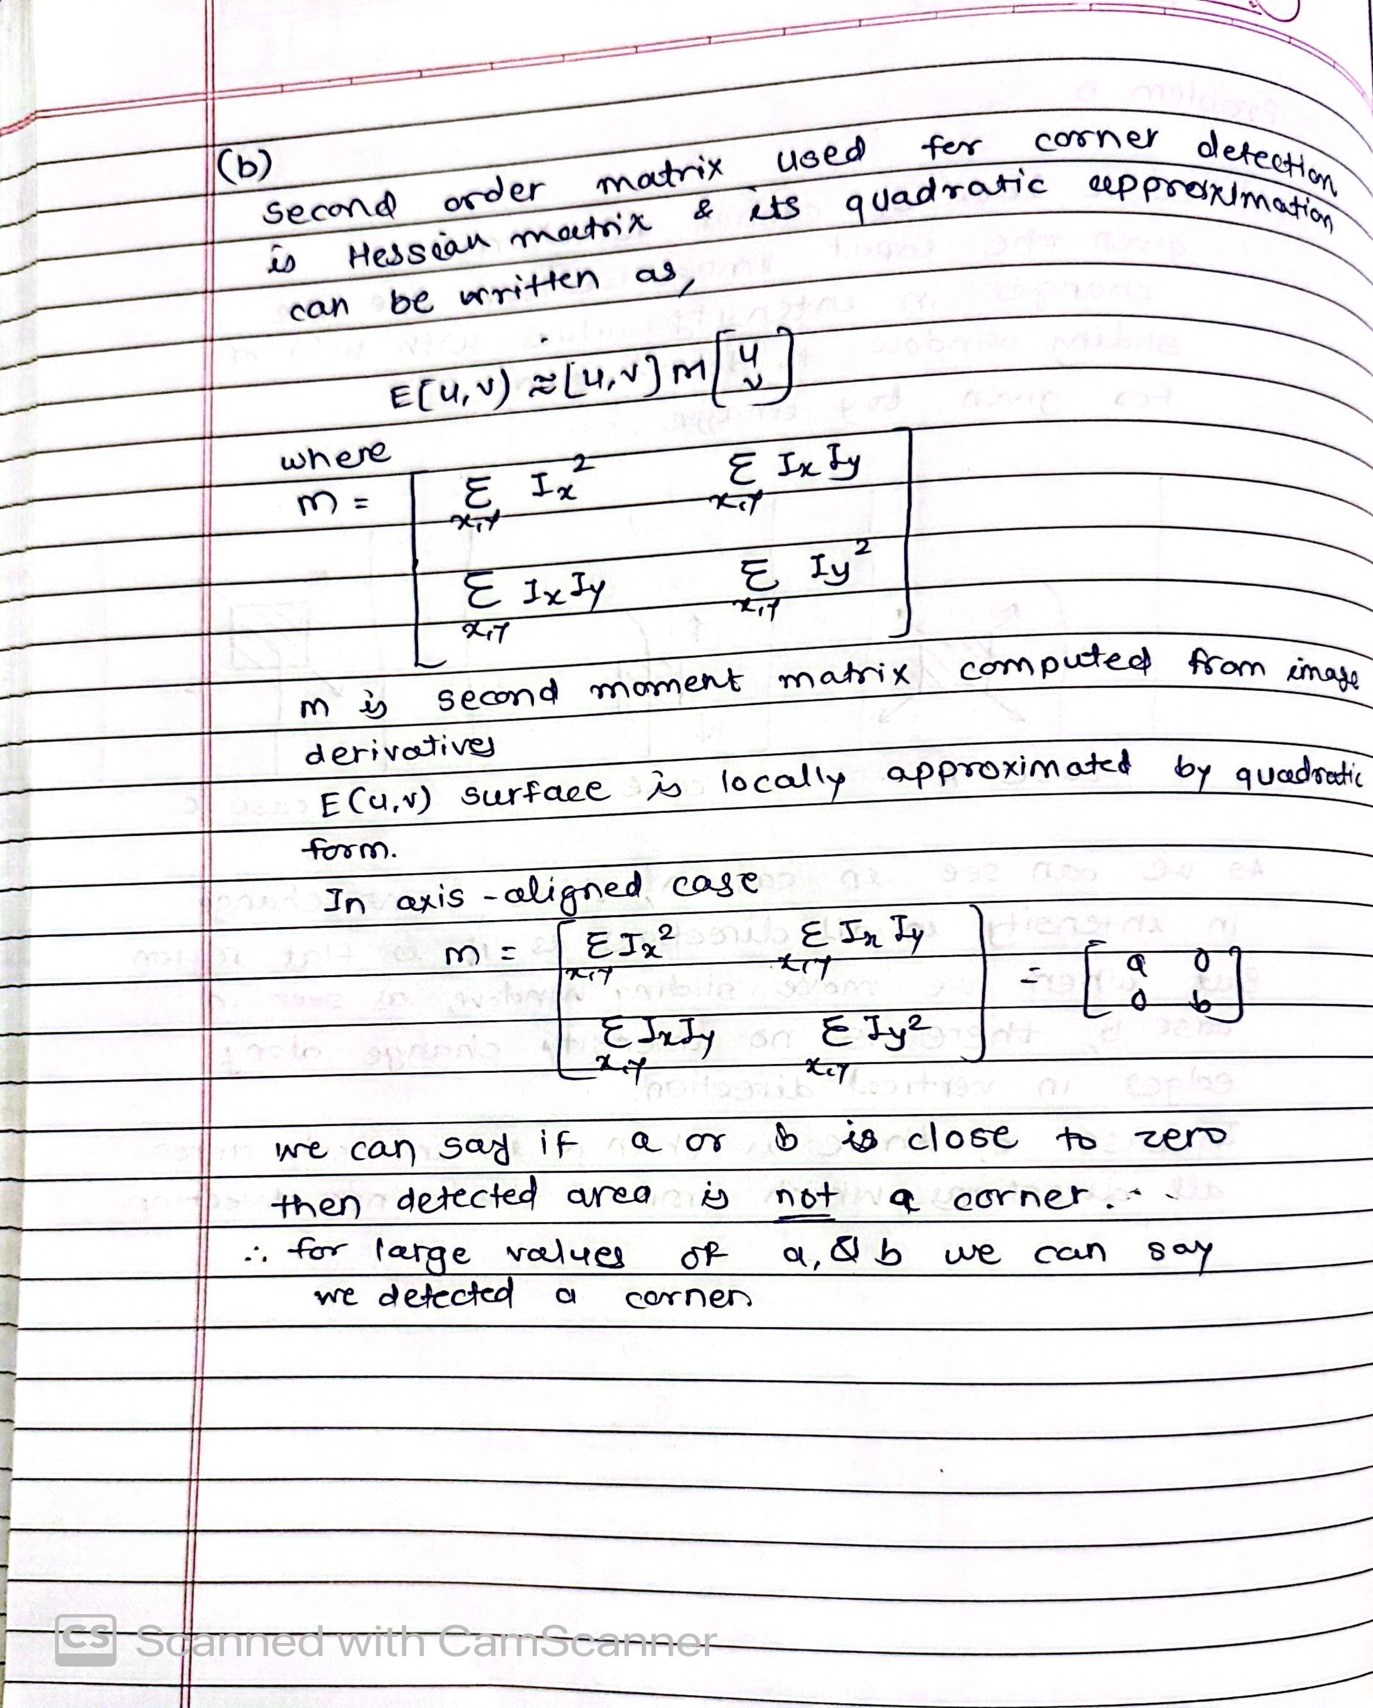 (b)
second order matrix used for corner detection
is Hessian matrix & its quadratic approximation
can be written as,
E[u,v) ≈ [u,v] M [u
v]
where
M = [ Σ Ix² Σ Ix Iy
x,y x,y
Σ Ix Iy Σ Iy² ]
x,y x,y
M is second moment matrix computed from image
derivatives
E(u,v) surface is locally approximated by quadratic
form.
In axis-aligned case
M = [ Σ Ix² Σ Ix Iy ] = [ a 0
x,y x,y 0 b ]
Σ Ix Iy Σ Iy²
x,y x,y
we can say if a or b is close to zero
then detected area is not a corner.
∴ for large values of a, & b we can say
we detected a corner.
CS Scanned with CamScanner